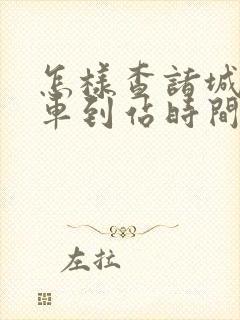 怎樣查諸城
車到佔時間
左拉